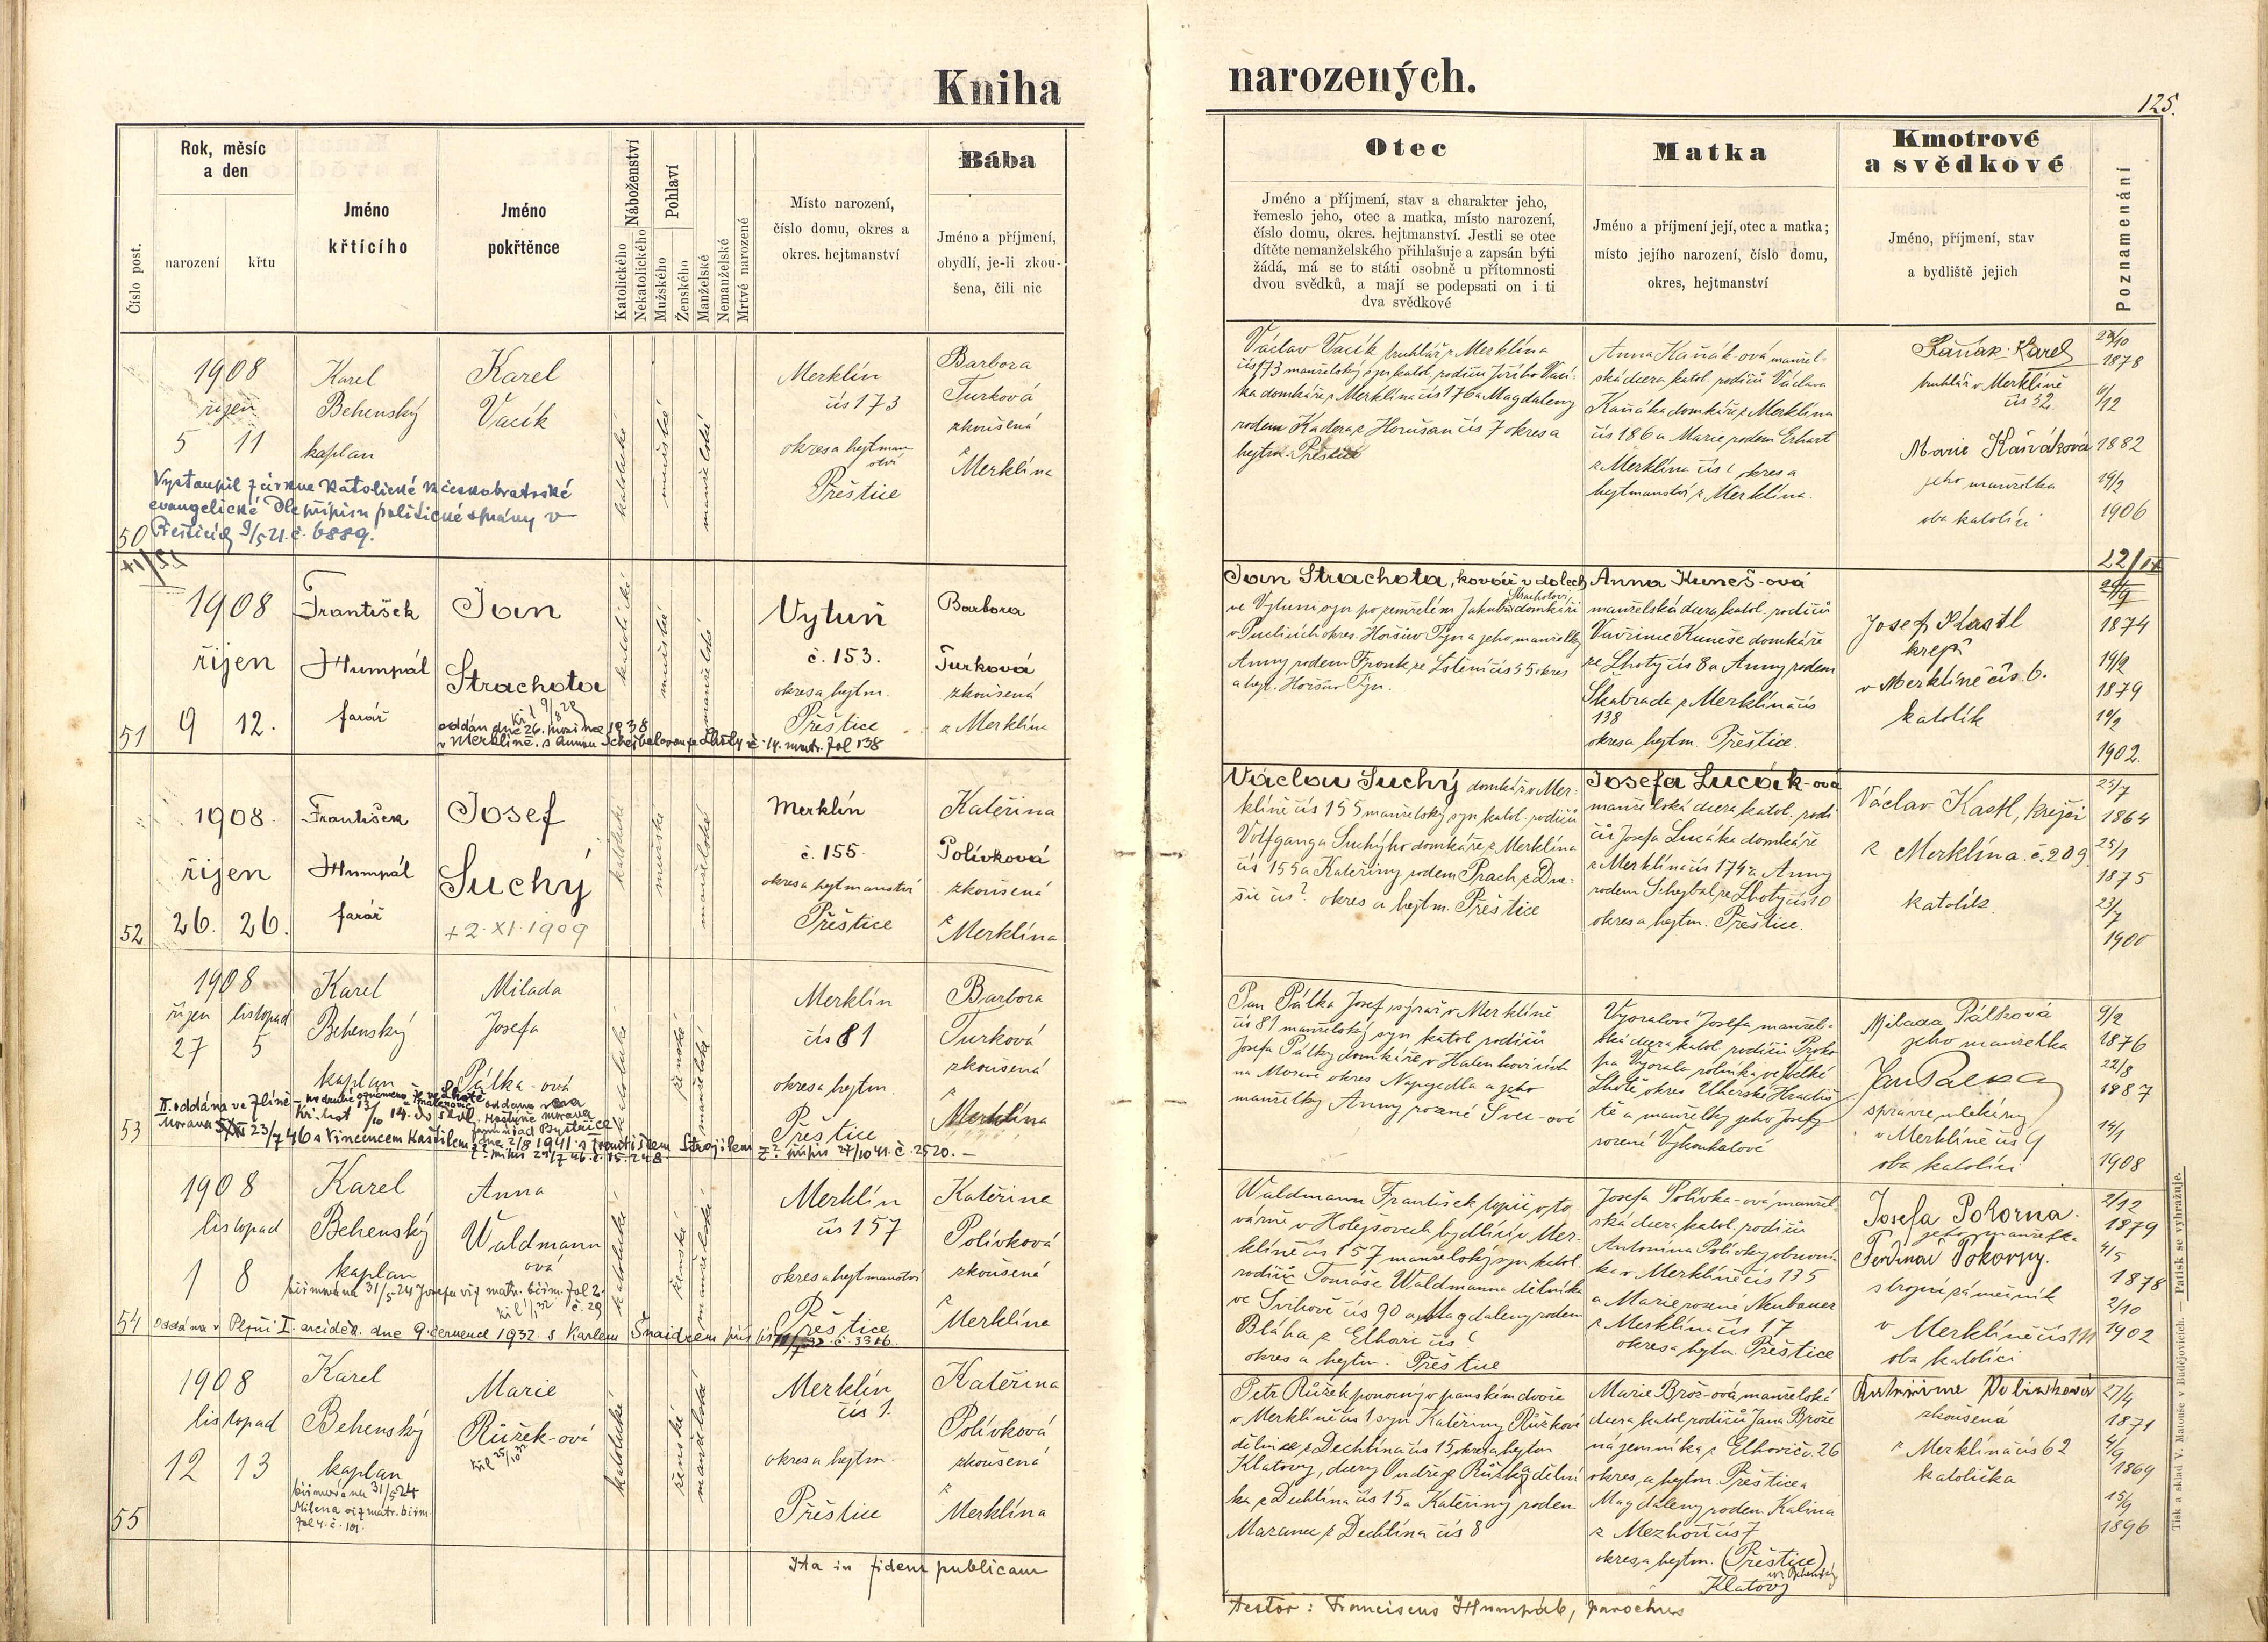 Kniha
narozených.
125.
Číslo post.
Rok, měsíc
a den
narození
křtu
Jméno
křtícího
Jméno
pokřtěnce
Náboženství
Katolického
Nekatolického
Pohlaví
Mužského
Ženského
Manželské
Nemanželské
Mrtvě narozené
Místo narození,
číslo domu, okres a
okres. hejtmanství
Bába
Jméno a příjmení,
obydlí, je-li zkou-
šena, čili nic
Otec
Jméno a příjmení, stav a charakter jeho,
řemeslo jeho, otec a matka, místo narození,
číslo domu, okres. hejtmanství. Jestli se otec
dítěte nemanželského přihlašuje a zapsán býti
žádá, má se to státi osobně u přítomnosti
dvou svědků, a mají se podepsati on i ti
dva svědkové
Matka
Jméno a příjmení její, otec a matka;
místo jejího narození, číslo domu,
okres, hejtmanství
Kmotrové
a svědkové
Jméno, příjmení, stav
a bydliště jejich
Poznamenání
50
1908
říjen
5 11
Karel
Behenský
kaplan
Karel
Vacík
katolické
mužské
manželské
Merklín
čís 173
okres a hejtman
ství
Přeštice
Barbora
Turková
zkoušená
z
Merklína
Vystoupil z církve katolické k českobratrské
evangelické Dle přípisu politické správy v
Přešticích 9/5 21. č. 6889.
Václav Vacík truhlář z Merklína
čís 173 manželský syn katol. rodičů Jiřího Vací-
ka domkáře z Merklína čís 176 a Magdaleny
rodem Kadera z Horušan čís 7 okres a
hejtm. Přeštice
Anna Kaňák-ová manžel-
ská dcera katol. rodičů Václava
Kaňáka domkáře z Merklína
čís 186 a Marie rodem Erhart
z Merklína čís ? okres a
hejtmanství z Merklína.
Kaňák Karel
truhlář v Merklíně
čís 32.
Marie Kaňáková
jeho manželka
oba katolíci
29/10
1878
6/12
1882
19/2
1906
51
1908
říjen
9 12.
František
Humpál
farář
Jan
Strachota
katolické
mužské
manželské
Vytuň
č. 153.
okres a hejtm.
Přeštice
Barbora
Turková
zkoušená
z Merklína
oddán dne 26. 1938
v Merklíně. s Annou Schejbalovou ze Lhoty č. 14. matr. fol 138
Jan Strachota, kovář v dolech
ve Vytuni syn po zemřelém Jakubu Strachotovi, domkáři
v Puclicích okres. Horšův Týn a jeho manželky
Anny rodem Frank ze Štění čís 55 okres
a hejt. Horšův Týn.
Anna Kuneš-ová
manželská dcera katol. rodičů
Vavřince Kuneše domkáře
ze Lhoty čís 8 a Anny rodem
Škabrada z Merklína čís
138
okres a hejtm. Přeštice.
Josef Kastl
krejčí
v Merklíně čís. 6.
katolík
1874
19/2
1879
19/2
1902.
52
1908
říjen
26. 26.
František
Humpál
farář
Josef
Suchý
+ 2. XI. 1909
katolické
mužské
manželské
Merklín
č. 155.
okres a hejtmanství
Přeštice
Kateřina
Polívková
zkoušená
z
Merklína
Václav Suchý domkář v Mer-
klíně čís 155 manželský syn katol. rodičů
Volfganga Suchýho domkáře z Merklína
čís 155 a Kateřiny rodem Prach z Dne-
šic čís ? okres a hejtm. Přeštice
Josefa Lucák-ová
manželská dcera katol. rodi
čů Josefa Lucáka domkáře
z Merklína čís 174 a Anny
rodem Schejbal ze Lhoty čís 10
okres a hejtm. Přeštice.
Václav Kastl, krejčí
z Merklína. č. 209.
katolík.
25/7
1864
25/1
1875
23/7
1900
53
1908
říjen listopad
27 5
Karel
Behenský
kaplan
Milada
Josefa
Pálka-ová
katolické
ženské
manželské
Merklín
čís 81
okres a hejtm
Přeštice
Barbora
Turková
zkoušená
z
Merklína
II. oddána ve Zlíně
Morava 23/7 46 s Vincencem Kašpílem
dne 2/8 1941 s Františkem Strojilem
Pan Pálka Josef, sýrař v Merklíně
čís 81 manželský syn katol rodičů
Josefa Pálky domkáře v Halenkovicích
na Moravě okres Napajedla a jeho
manželky Anny rozené Švec-ové
Vyoralová Josefa manžel-
ská dcera katol. rodičů Proko
pa Vyorala rolníka ve Velké
Lhotě okres Uherské Hradiš
tě a manželky jeho Josefy
rozené Vykoukalové
Milada Pálková
jeho manželka
Jan Palka
správce mlékárny
v Merklíně čís 9
oba katolíci
9/2
1876
22/8
1887
14/1
1908
54
1908
listopad
1 8
Karel
Behenský
kaplan
Anna
Waldmann
ová
katolické
ženské
manželské
Merklín
čís 157
okres a hejtmanství
Přeštice
Kateřina
Polívková
zkoušená
z
Merklína
biřmována 31/5 24 Josefa viz matr. biřm. fol 2.
č. 29
Oddána v Plzni I. arciděk. dne 9 července 1932 s Karlem Šnaidrem
Waldmann František topič v to
várně v Holejšovech bydlící v Mer-
klíně čís 157 manželský syn katol
rodičů Tomáše Waldmanna dělníka
ve Švihově čís 90 a Magdaleny rodem
Bláha z Elhovic čís ?
okres a hejtm. Přeštice
Josefa Polívka-ová manžel-
ská dcera katol. rodičů
Antonína Polívky obuvní-
ka v Merklíně čís 135
a Marie rozené Neubauer
z Merklína čís 17
okres a hejtm. Přeštice
Josefa Pokorna.
jeho manželka
Ferdinad Pokorny.
strojní zámečník
v Merklíně čís 111
oba katolíci
2/12
1879
4/5
1878
2/10
1902
55
1908
listopad
12 13
Karel
Behenský
kaplan
Marie
Růžek-ová
katolické
ženské
manželské
Merklín
čís 1.
okres a hejtm.
Přeštice
Kateřina
Polívková
zkoušená
z
Merklína
biřmována 31/5 24
Milena viz matr. biřm.
fol 4. č. 101.
Petr Růžek ponocný v panském dvoře
v Merklíně čís 1 syn Kateřiny Růžkové
dělnice z Dechtína čís 15 okres a hejtm.
Klatovy, dcery Ondřeje Růžka dělní
ka z Dechtína čís 15 a Kateřiny rodem
Mazanec z Dechtína čís 8
Marie Brož-ová manželská
dcera katol. rodičů Jana Brože
nájemníka z Elhovic č. 26
okres, a hejtm. Přeštice a
Magdaleny rodem Kalina
z Mezhoří čís 7
okres a hejtm. (Přeštice)
Klatovy
zkoušená
z Merklína čís 62
katolička
27/4
1871
4/9
1869
15/9
1896
Ita in fidem publicam
Testor: Franciscus Humpál, parochus
Tisk a sklad V. Matouše v Budějovicích. — Patisk se vyhražuje.